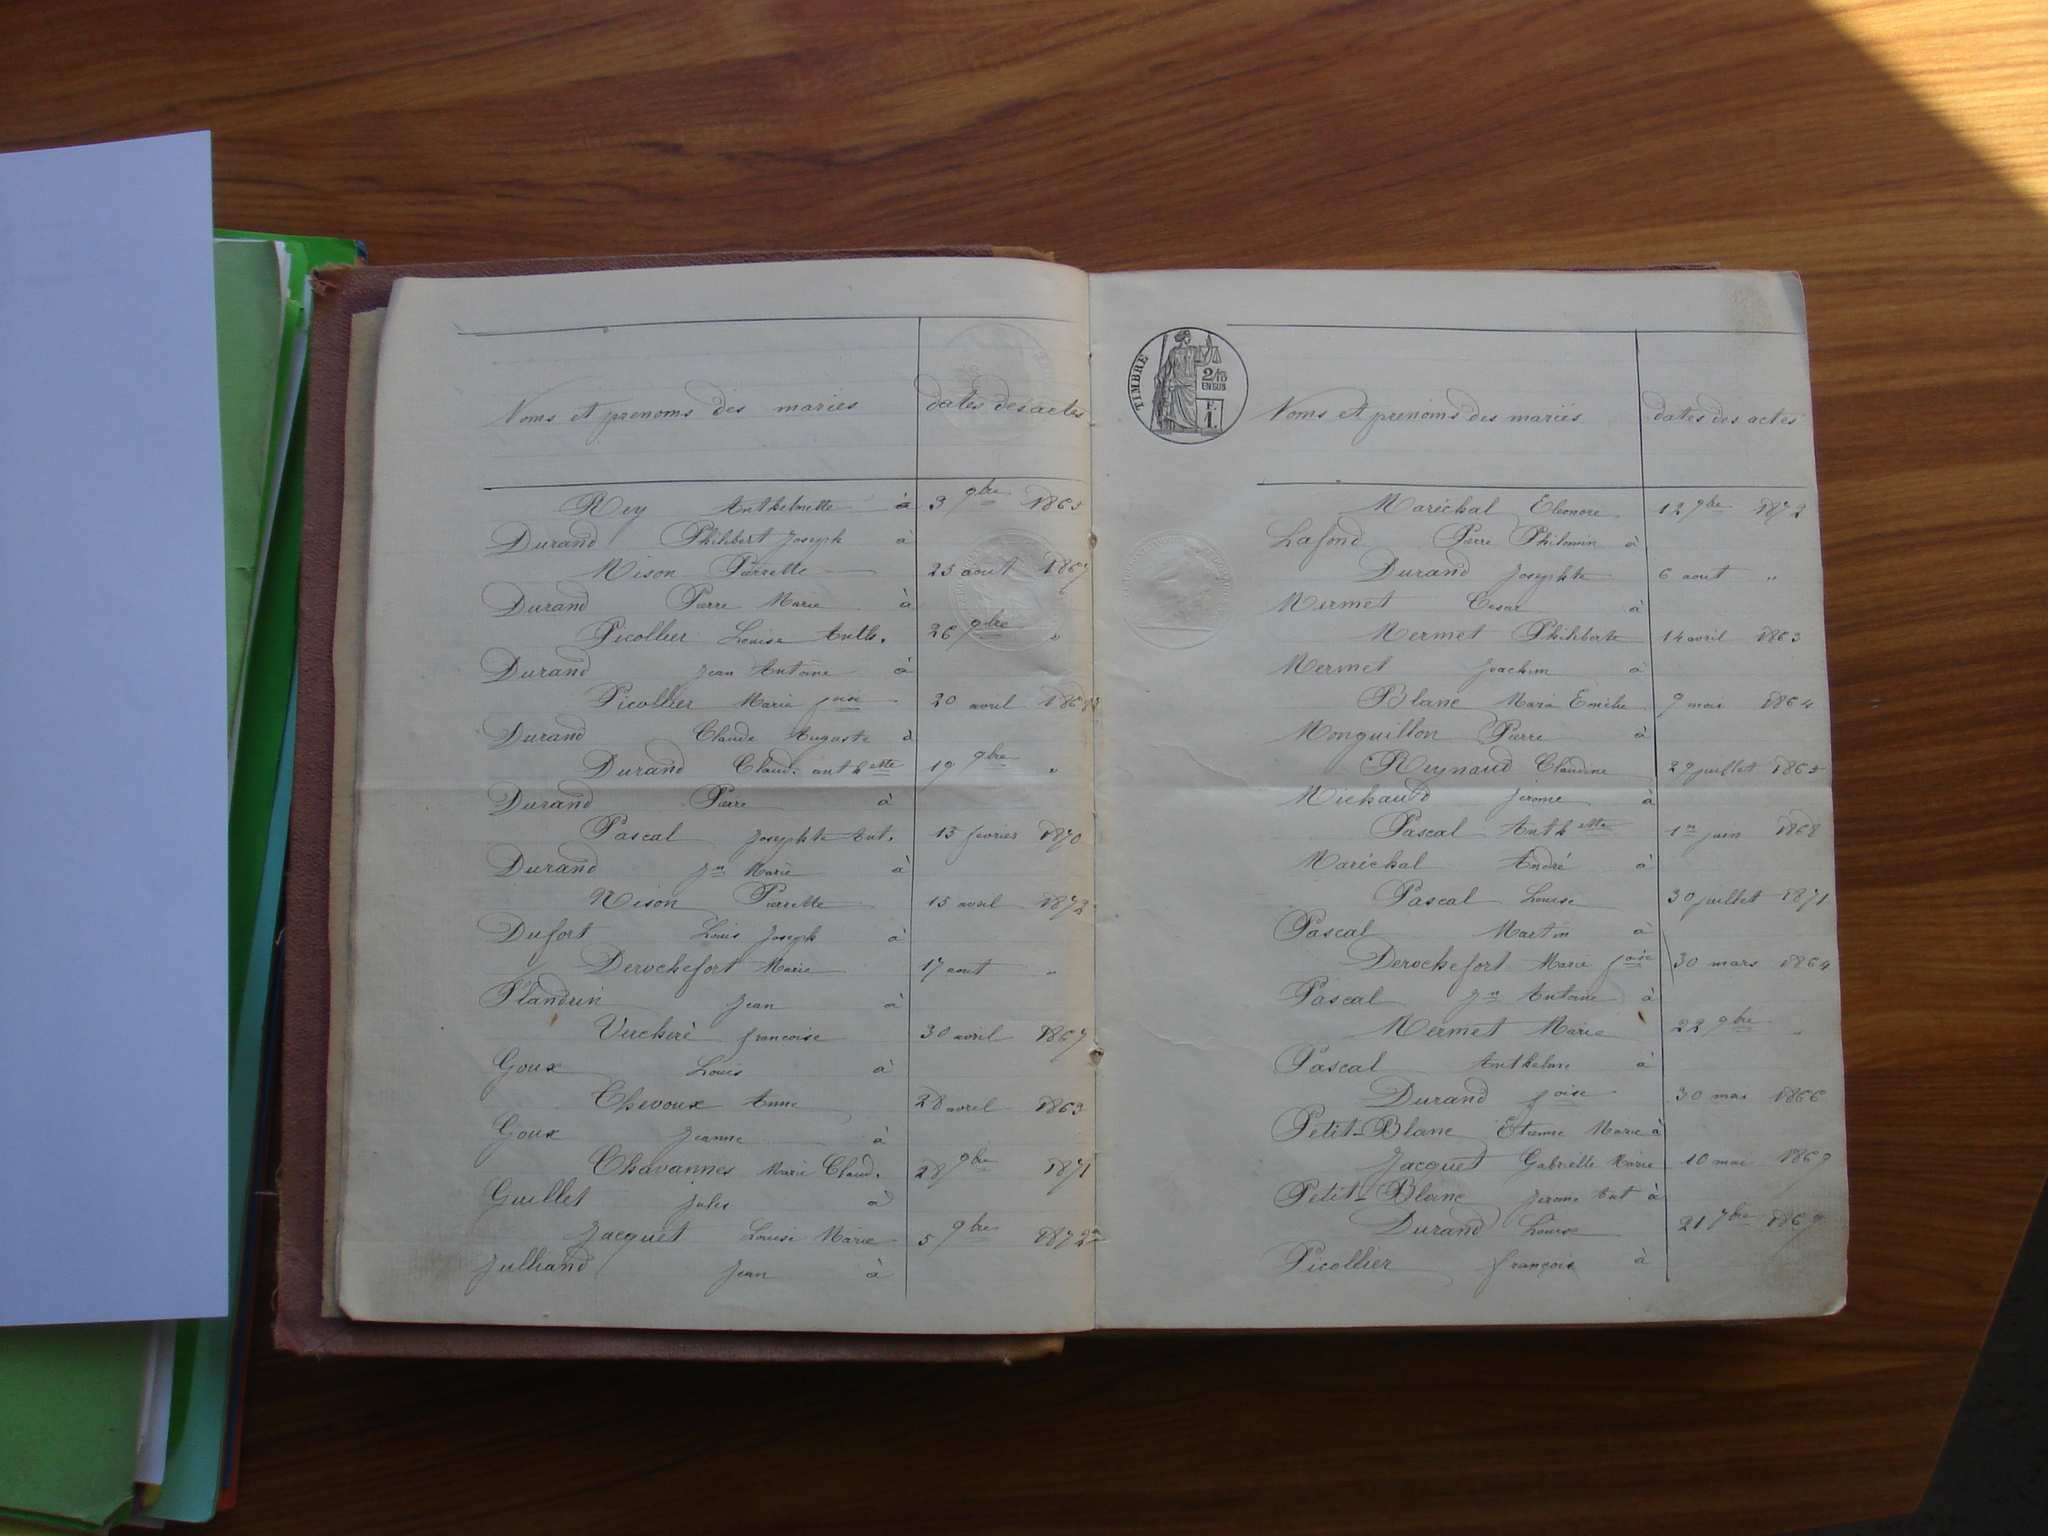 Noms et prenoms des mariés dates des actes
Rey Anthelmette à 3 9bre 1865
Durand Philibert Joseph à
Nison Pierrette 25 aout 1867
Durand Pierre Marie à
Picollier Louise Anth. 26 9bre "
Durand Jean Antoine à
Picollier Marie foise 20 avril 1868
Durand Claude Auguste à
Durand Claud. anthette 19 9bre "
Durand Pierre à
Pascal Josephte Ant. 13 fevrier 1870
Durand Jn Marie à
Nison Pierrette 15 avril 1872
Dufort Louis Joseph à
Derochefort Marie 17 aout "
Flandrin Jean à
Vucheré francoise 30 avril 1867
Goux Louis à
Chevoux Anne 28 avril 1863
Goux Jeanne à
Chavannes Marie Claud. 28 9bre 1871
Guillet Jules à
Jacquet Louise Marie 5 9bre 1872
Julliand Jean à
TIMBRE
2/10
EN SUS
F.
1.
Noms et prenoms des mariés dates des actes
Maréchal Eleonore 12 9bre 1872
Lafond Pierre Philomin à
Durand Josephte 6 aout "
Mermet Cesar à
Mermet Philiberte 14 avril 1863
Mermet Joachim à
Blanc Marie Emilie 9 mai 1864
Monguillon Pierre à
Reynaud Claudine 29 juillet 1865
Michaud Jerome à
Pascal Anthette 1er juin 1868
Maréchal André à
Pascal Louise 30 juillet 1871
Pascal Martin à
Derochefort Marie foise 30 mars 1864
Pascal Jn Antoine à
Mermet Marie 22 9bre "
Pascal Anthelme à
Durand foise 30 mai 1866
Petit-Blanc Etienne Marie à
Jacquet Gabrielle Marie 10 mai 1869
Petit-Blanc Jerome Ant à
Durand Louise 21 7bre 1869
Picollier françois à